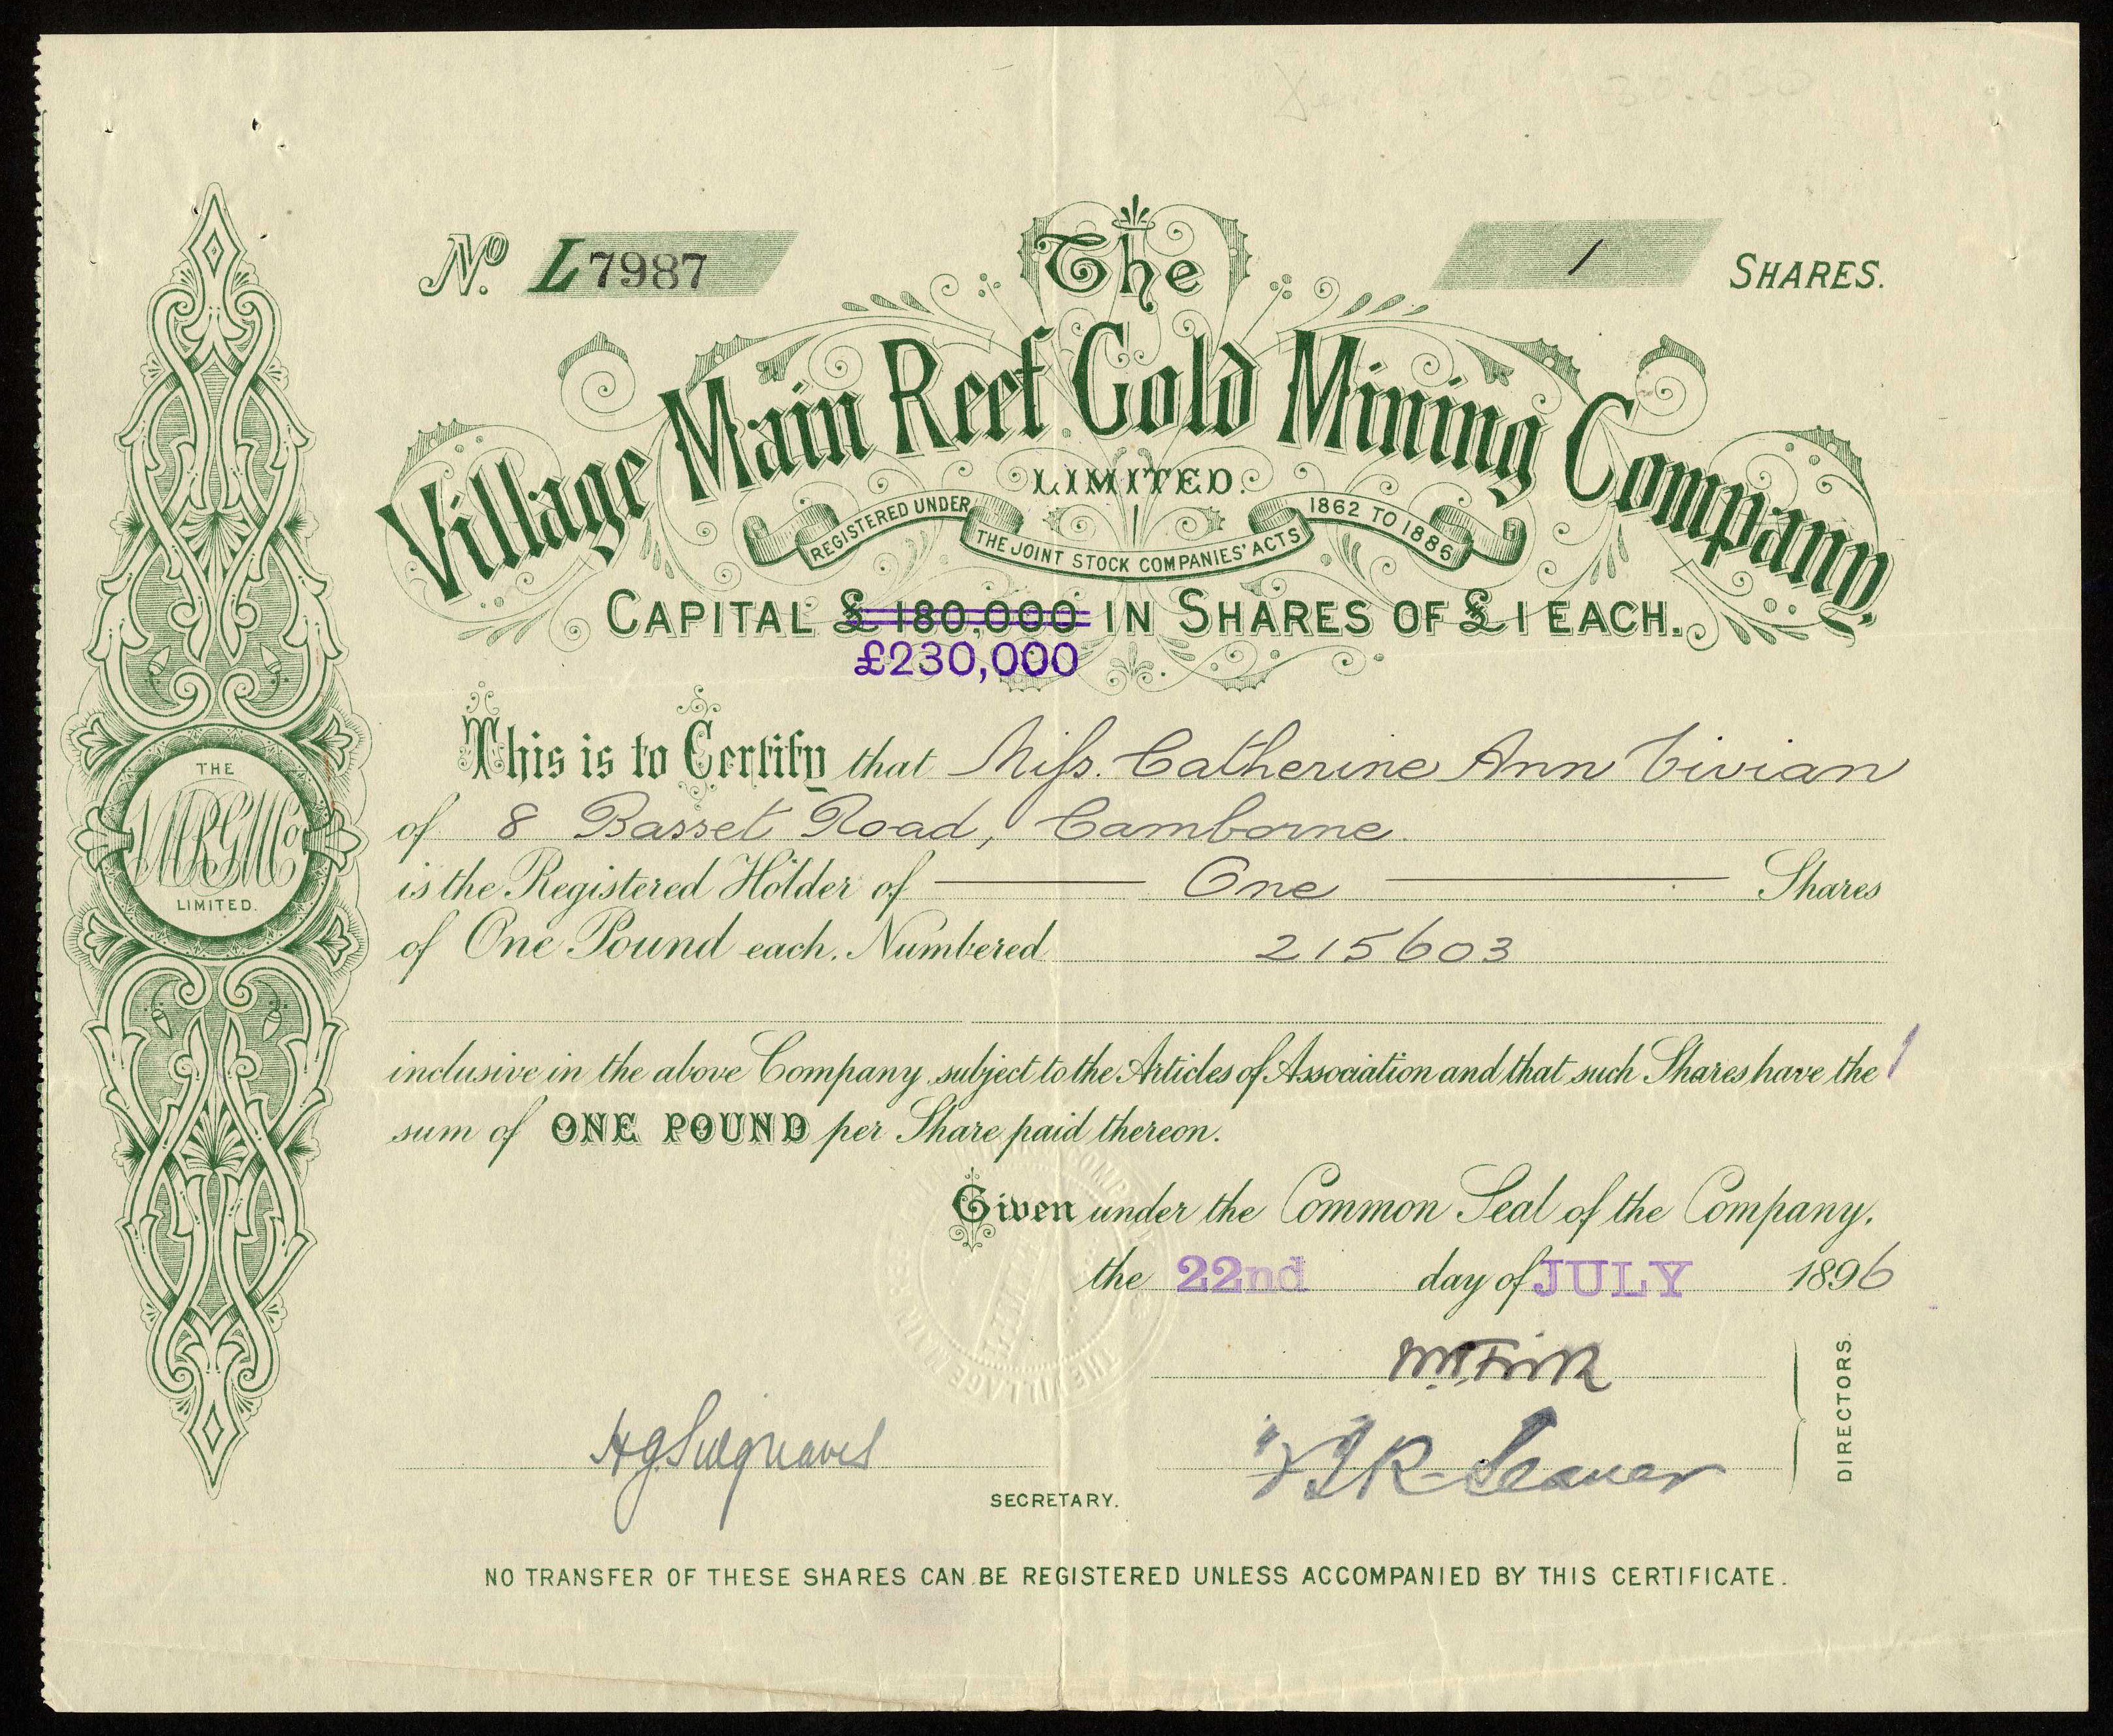 No. L7987
1 SHARES.
The
Village Main Reef Gold Mining Company,
LIMITED.
REGISTERED UNDER THE JOINT STOCK COMPANIES' ACTS 1862 TO 1886
CAPITAL £180,000 IN SHARES OF £1 EACH.
£230,000
This is to Certify that Miss. Catherine Ann Vivian
of 8 Basset Road, Camborne.
is the Registered Holder of One Shares
of One Pound each. Numbered 215603
inclusive in the above Company, subject to the Articles of Association and that such Shares have the
sum of ONE POUND per Share paid thereon.
Given under the Common Seal of the Company,
the 22nd day of JULY 1896
DIRECTORS.
SECRETARY.
NO TRANSFER OF THESE SHARES CAN BE REGISTERED UNLESS ACCOMPANIED BY THIS CERTIFICATE.
THE
VMRGMCo
LIMITED.